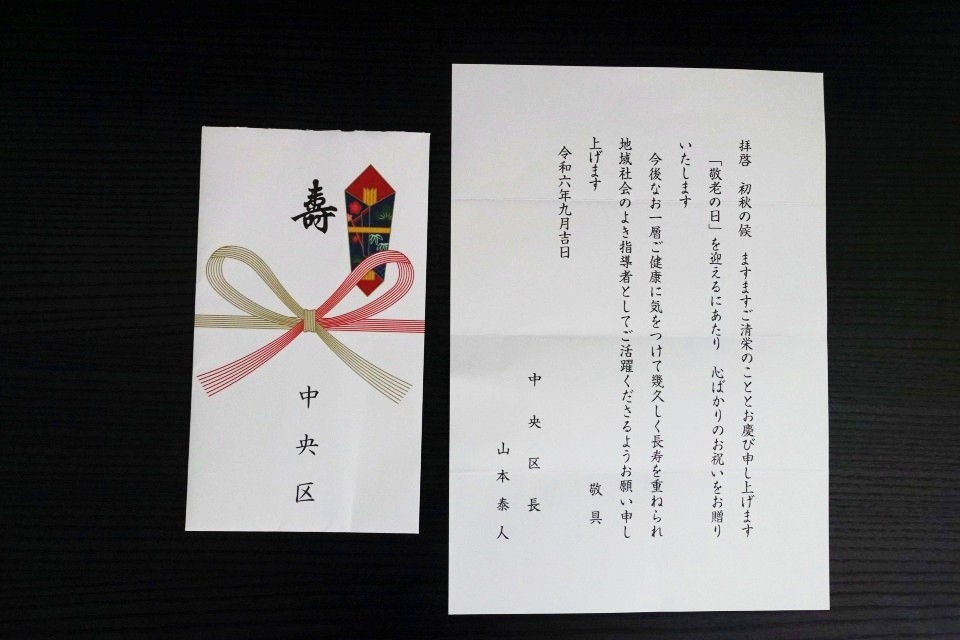 壽
中央区
拝啓　初秋の候　ますますご清栄のこととお慶び申し上げます
「敬老の日」を迎えるにあたり　心ばかりのお祝いをお贈り
いたします
今後なお一層ご健康に気をつけて幾久しく長寿を重ねられ
地域社会のよき指導者としてご活躍くださるようお願い申し
上げます
敬具
令和六年九月吉日
中央区長
山本泰人